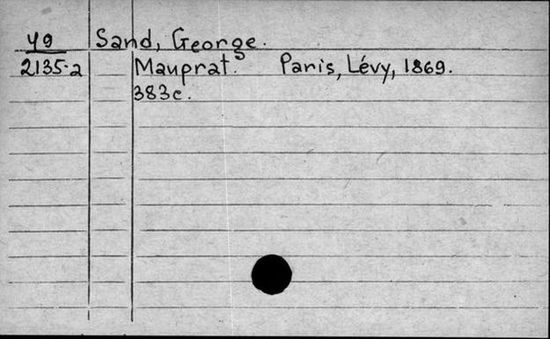 У9 Sand, George.
2135-2 Mauprat. Paris, Lévy, 1869.
383c.